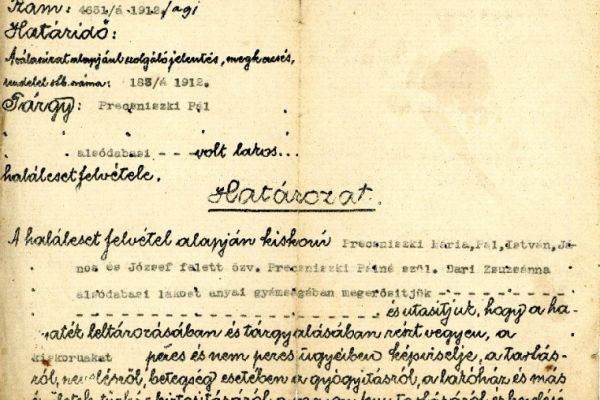 Szám: 4631/á 1912./agi
Határidő:
A válaszirat alapjául szolgáló jelentés, megkeresés,
rendelet stb. száma: 183/á 1912.
Tárgy: Preceniszki Pál
alsódabasi - - - volt lakos...
haláleset felvétele.
Határozat.
A haláleset felvétel alapján kiskorú Preceniszki Mária,Pál,István,Já-
nos és József felett özv. Preceniszki Pálné szül. Dari Zsuzsánna
alsódabasi lakost anyai gyámságában megerősítjük - - - - - - - -
és utasítjuk, hogy a ha-
gyaték leltározásában és tárgyalásában részt vegyen, a
kiskoruakat peres és nem peres ügyeiben képviselje, a tartás-
ról, nevelésről, betegség esetében a gyógyításról, a lakóház és más
épületek